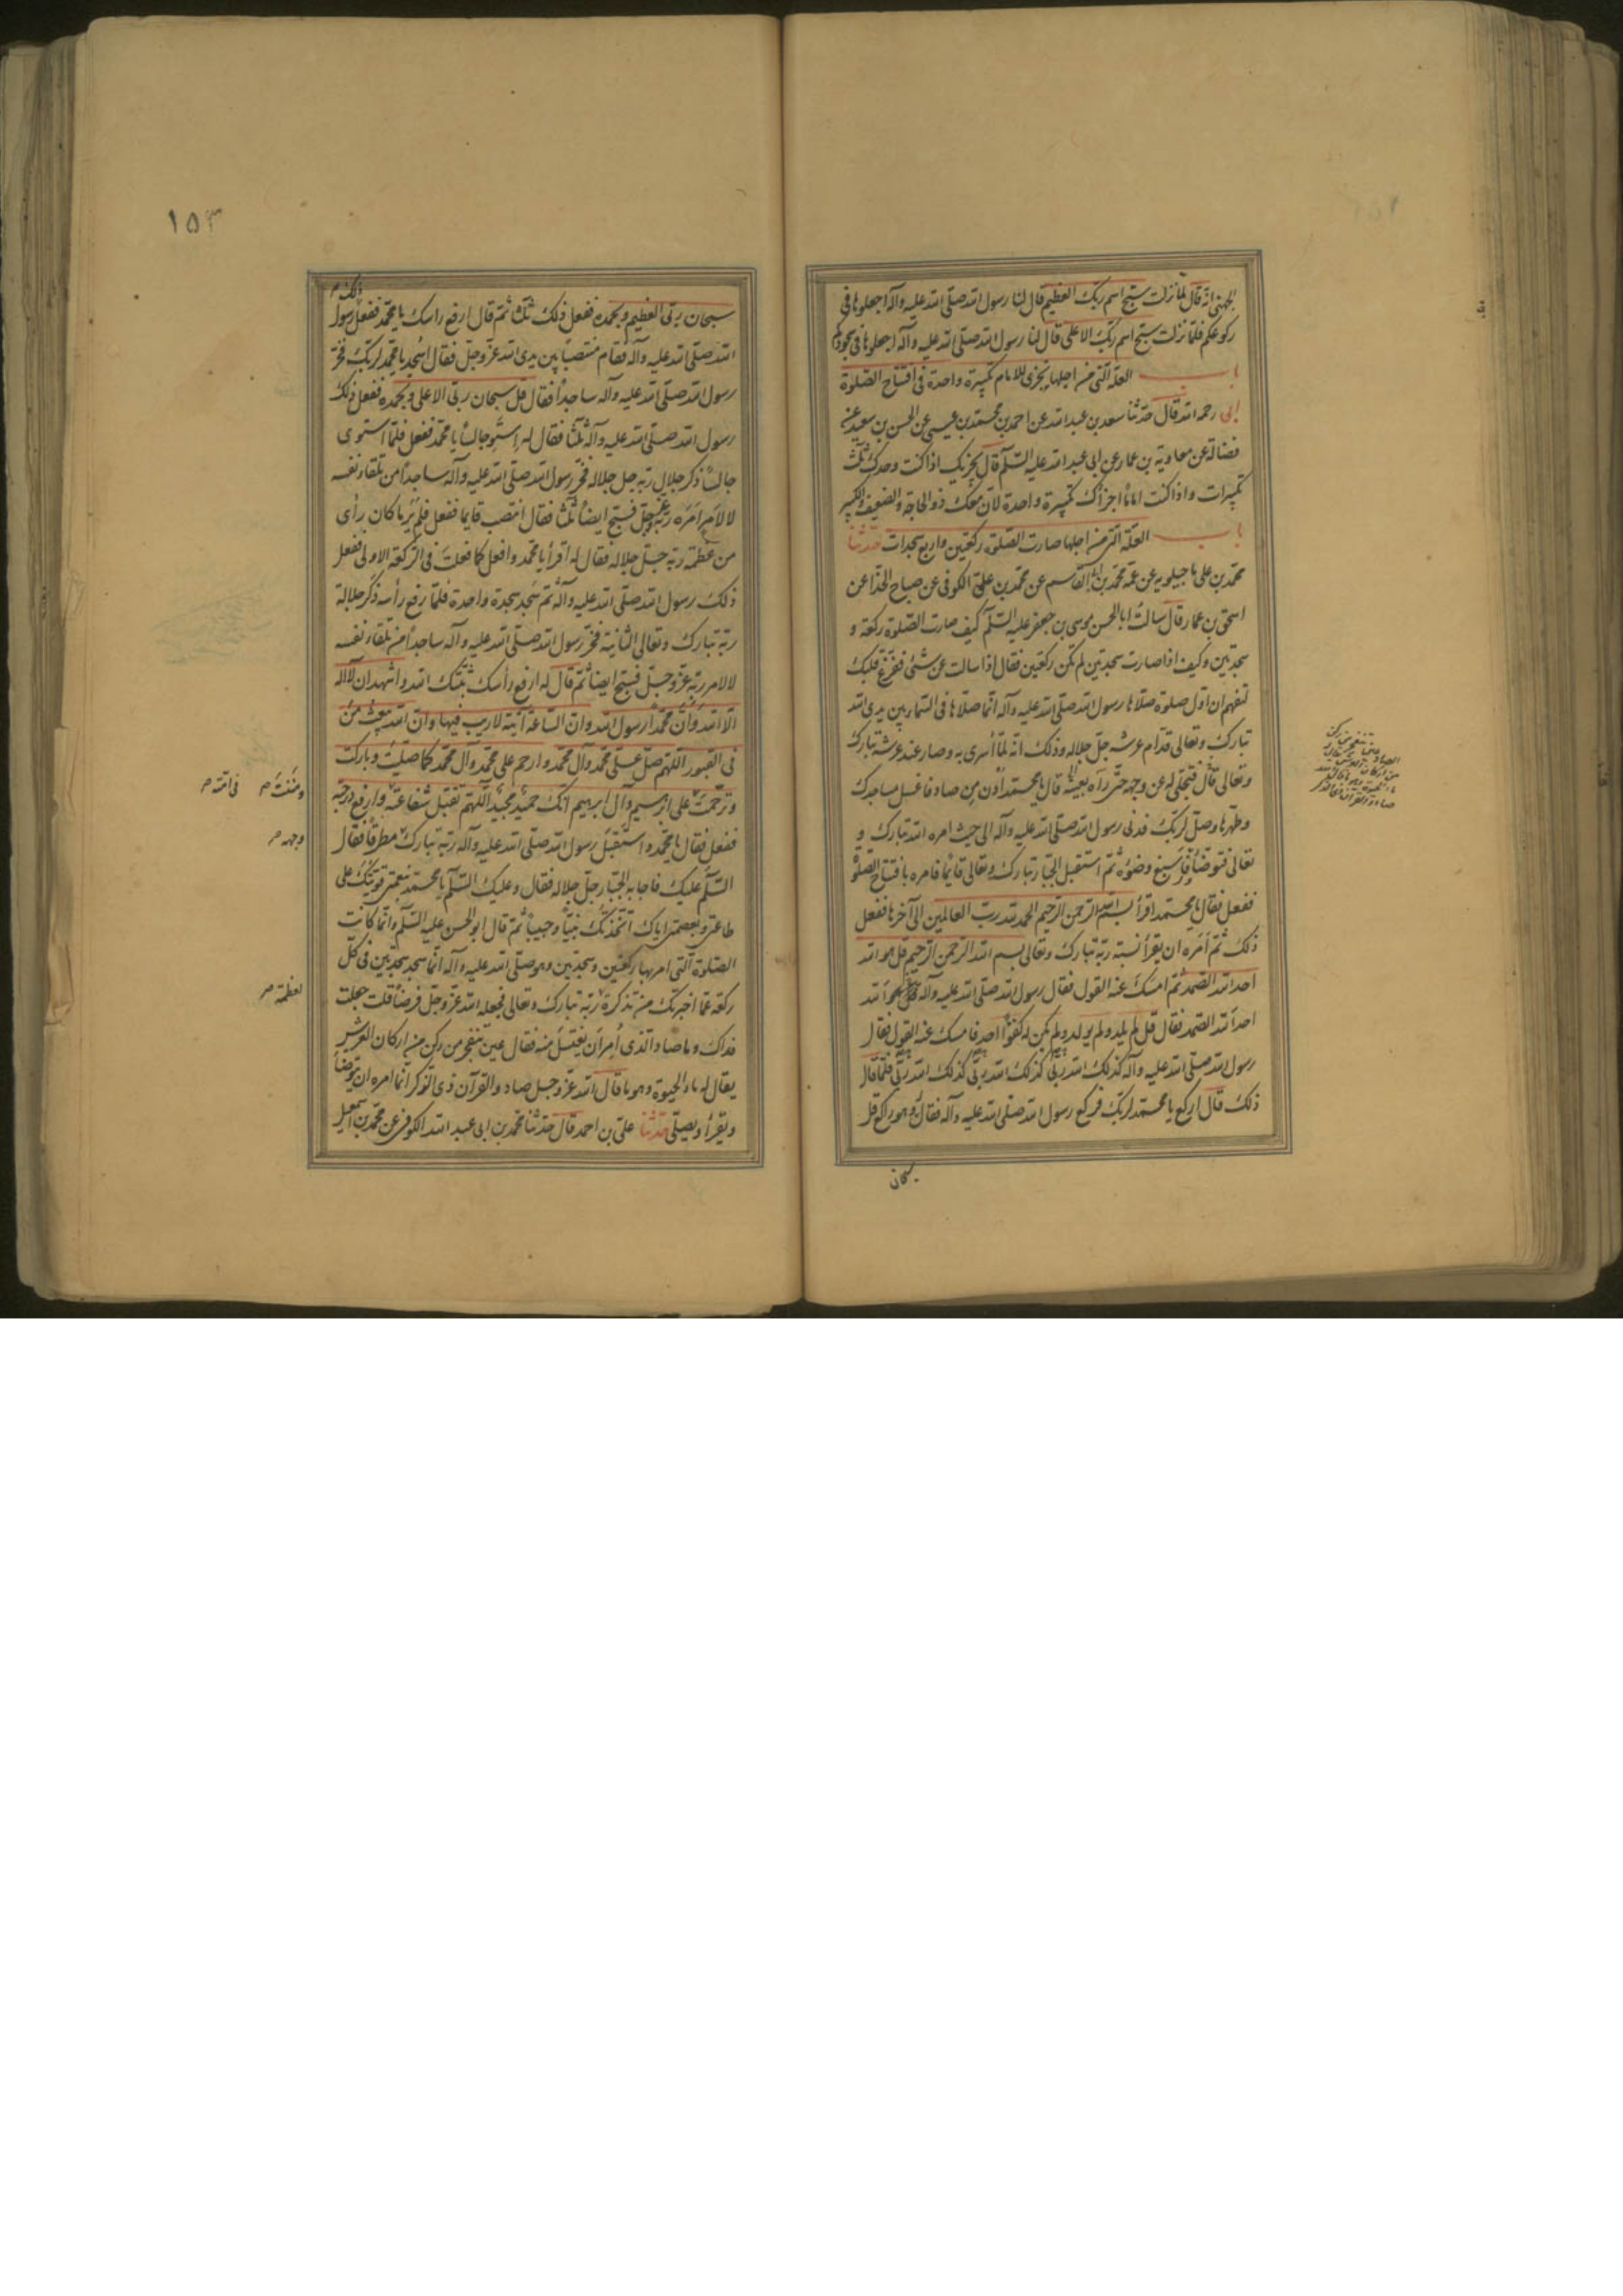 الجهنی انه قال لما نزلت سبح اسم ربک العظیم قال لنا رسول الله صلی الله علیه وآله اجعلوها فی
رکوعکم فلما نزلت سبح اسم ربک الاعلی قال لنا رسول الله صلی الله علیه وآله اجعلوها فی سجودکم
باب العلة التی من اجلها یجزی للامام تکبیرة واحدة فی افتتاح الصلوة
ابی رحمه الله قال حدثنا سعد بن عبد الله عن احمد بن محمد بن عیسی عن الحسن بن سعید عن
فضالة عن معاویة بن عمار عن ابی عبد الله علیه السلم قال یجزیک اذا کنت وحدک ثلث
تکبیرات واذا کنت اماما اجزأک تکبیرة واحدة لان معک ذو الحاجة والضعیف والکبیر
باب العلة التی من اجلها صارت الصلوة رکعتین واربع سجدات حدثنا
محمد بن علی ماجیلویه عن عمه محمد بن ابی القاسم عن محمد بن علی الکوفی عن صباح الحذا عن
اسحق بن عمار قال سالت ابا الحسن موسی بن جعفر علیه السلم کیف صارت الصلوة رکعة و
سجدتین وکیف اذا صارت سجدتین لم تکن رکعتین فقال اذا سالت عن شئ ففرغ قلبک
لتفهم ان اول صلوة صلاها رسول الله صلی الله علیه وآله انما صلاها فی السماء بین یدی الله
تبارک وتعالی قدام عرشه جل جلاله وذلک انه لما اسری به وصار عند عرشه تبارک
وتعالی قال فتجلی له عن وجهه حتی رآه بعینه قال یا محمد ادن من صاد فاغسل مساجدک
وطهرها وصل لربک فدنی رسول الله صلی الله علیه وآله الی حیث امره الله تبارک و
تعالی فتوضأ فاسبغ وضوئه ثم استقبل الجبار تبارک وتعالی قایما فامره بافتتاح الصلوة
ففعل فقال یا محمد اقرأ بسم الله الرحمن الرحیم الحمد لله رب العالمین الی آخرها ففعل
ذلک ثم امره ان یقرأ نسبة ربه تبارک وتعالی بسم الله الرحمن الرحیم قل هو الله
احد الله الصمد ثم امسک عنه القول فقال رسول الله صلی الله علیه وآله قل هو الله
احد الله الصمد فقال قل لم یلد ولم یولد ولم یکن له کفوا احد فامسک عنه القول فقال
رسول الله صلی الله علیه وآله کذلک الله ربی کذلک الله ربی کذلک الله ربی فلما قال
ذلک قال ارکع یا محمد لربک فرکع رسول الله صلی الله علیه وآله فقال له وهو راکع قل
سبحان
١٥٣
ذلک
سبحان ربی العظیم وبحمده ففعل ذلک ثلثا ثم قال ارفع راسک یا محمد ففعل رسول
الله صلی الله علیه وآله فقام منتصبا بین یدی الله عز وجل فقال اسجد یا محمد لربک فخر
رسول الله صلی الله علیه وآله ساجدا فقال قل سبحان ربی الاعلی وبحمده ففعل ذلک
رسول الله صلی الله علیه وآله ثلثا فقال له استو جالسا یا محمد ففعل فلما استوی
جالسا ذکر جلال ربه جل جلاله فخر رسول الله صلی الله علیه وآله ساجدا من تلقاء نفسه
لا لامر امره ربه عز وجل فسبح ایضا ثلثا فقال انتصب قایما ففعل فلم یر ما کان رأی
من عظمة ربه جل جلاله فقال له اقرأ یا محمد وافعل کما فعلت فی الرکعة الاولی ففعل
ذلک رسول الله صلی الله علیه وآله ثم سجد سجدة واحدة فلما رفع رأسه ذکر جلالة
ربه تبارک وتعالی الثانیة فخر رسول الله صلی الله علیه وآله ساجدا من تلقاء نفسه
لا لامر ربه عز وجل فسبح ایضا ثم قال له ارفع رأسک ثبتک الله واشهد ان لا اله
الا الله وان محمدا رسول الله وان الساعة آتیة لا ریب فیها وان الله یبعث من
فی القبور اللهم صل علی محمد وآل محمد وارحم علی محمد وآل محمد کما صلیت وبارکت
وترحمت علی ابرهیم وآل ابرهیم انک حمید مجید اللهم تقبل شفاعته وارفع درجته
ومننت
فی امته
ففعل فقال یا محمد واستقبل رسول الله صلی الله علیه وآله ربه تبارک مطرقا فقال
وجهه
السلم علیک فاجابه الجبار جل جلاله فقال وعلیک السلم یا محمد بنعمتی قویتک علی
طاعتی وبعصمتی ایاک اتخذتک نبیا وحبیبا ثم قال ابو الحسن علیه السلم وانما کانت
الصلوة التی امر بها رکعتین وسجدتین وهو صلی الله علیه وآله انما سجد سجدتین فی کل
رکعة عما اخبرتک من تذکره ربه تبارک وتعالی فجعله الله عز وجل فرضا قلت جعلت
لعظمة
فداک وما صاد الذی امر ان یغتسل منه فقال عین تنفجر من رکن من ارکان العرش
یقال له ماء الحیوة وهو ما قال الله عز وجل صاد والقرآن ذی الذکر انما امره ان یتوضأ
ویقرأ ویصلی حدثنا علی بن احمد قال حدثنا محمد بن ابی عبد الله الکوفی عن محمد بن اسمعیل